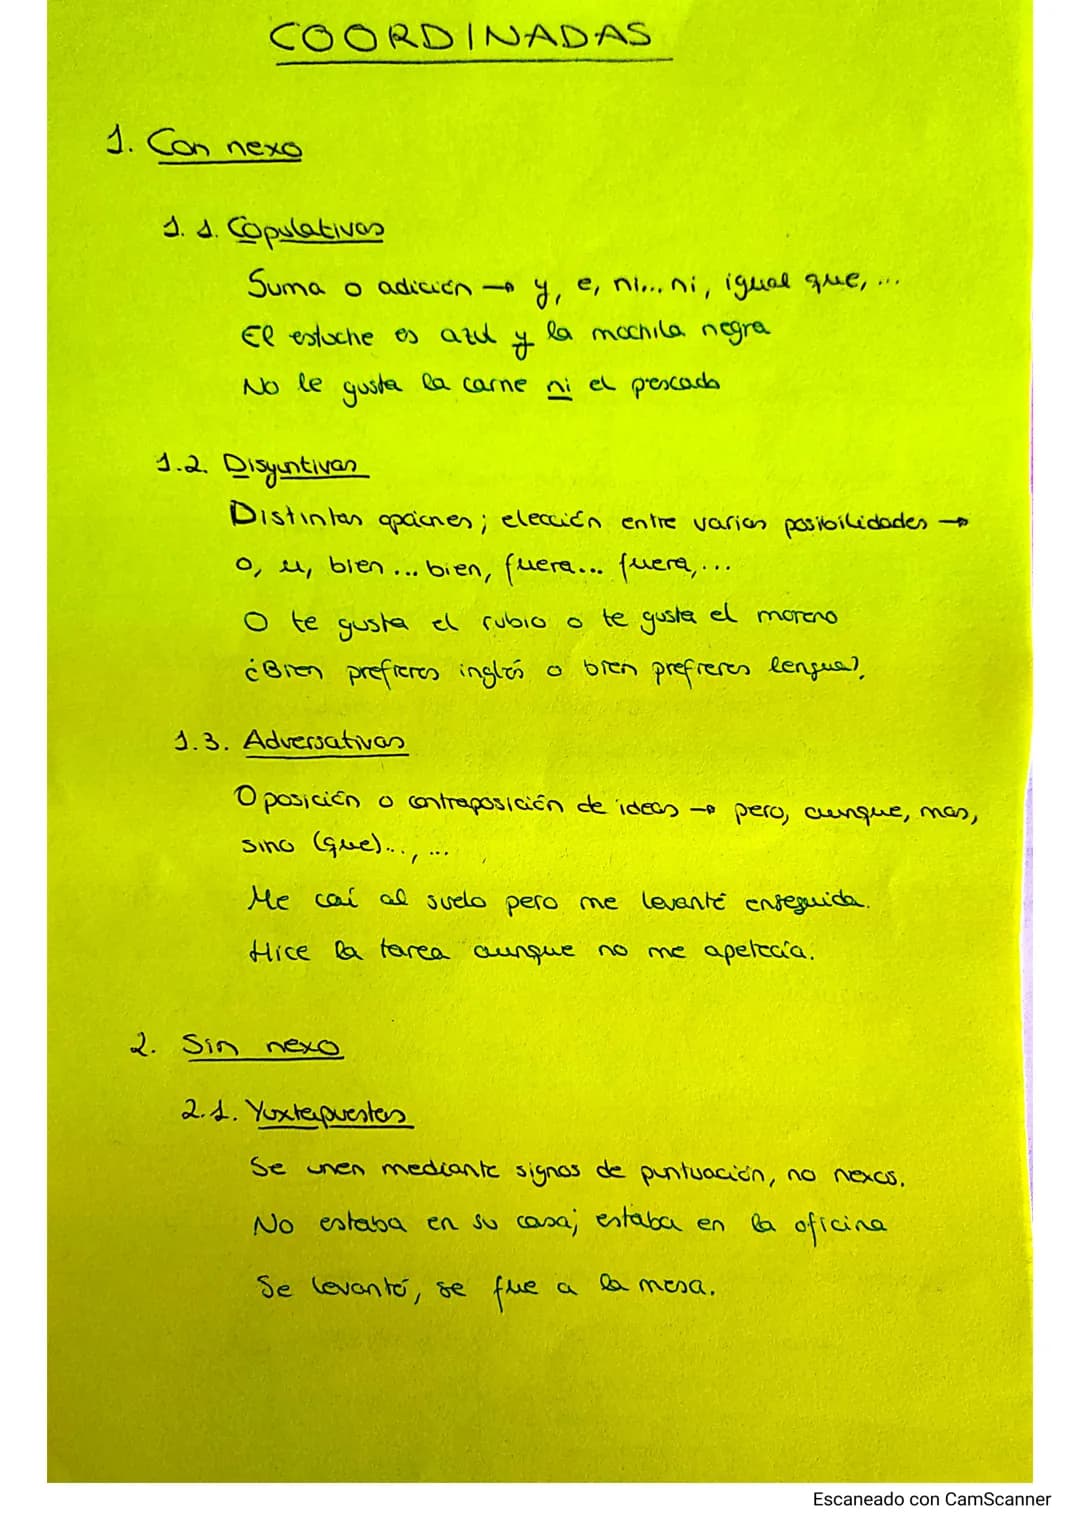 COORDINADAS
1. Con nexo
1.1. Copulativas
Suma o adición → y, e, ni... ni, igual que, ...
El estuche es azul y la mochila negra
No le gusta la carne ni el pescado
1.2. Disyuntivas
Distintas opciones; elección entre varias posibilidades →
o, u, bien ... bien, fuera... fuera,...
O te gusta el rubio o te gusta el moreno
¿Bien prefieres inglés o bien prefieres lengua?
1.3. Adversativas
Oposición o contraposición de ideas → pero, aunque, mas,
sino (que)..., ...
Me caí al suelo pero me levanté enseguida.
Hice la tarea aunque no me apetecía.
2. Sin nexo
2.1. Yuxtapuestas
Se unen mediante signos de puntuación, no nexos.
No estaba en su casa; estaba en la oficina
Se levantó, se fue a la mesa.
Escaneado con CamScanner